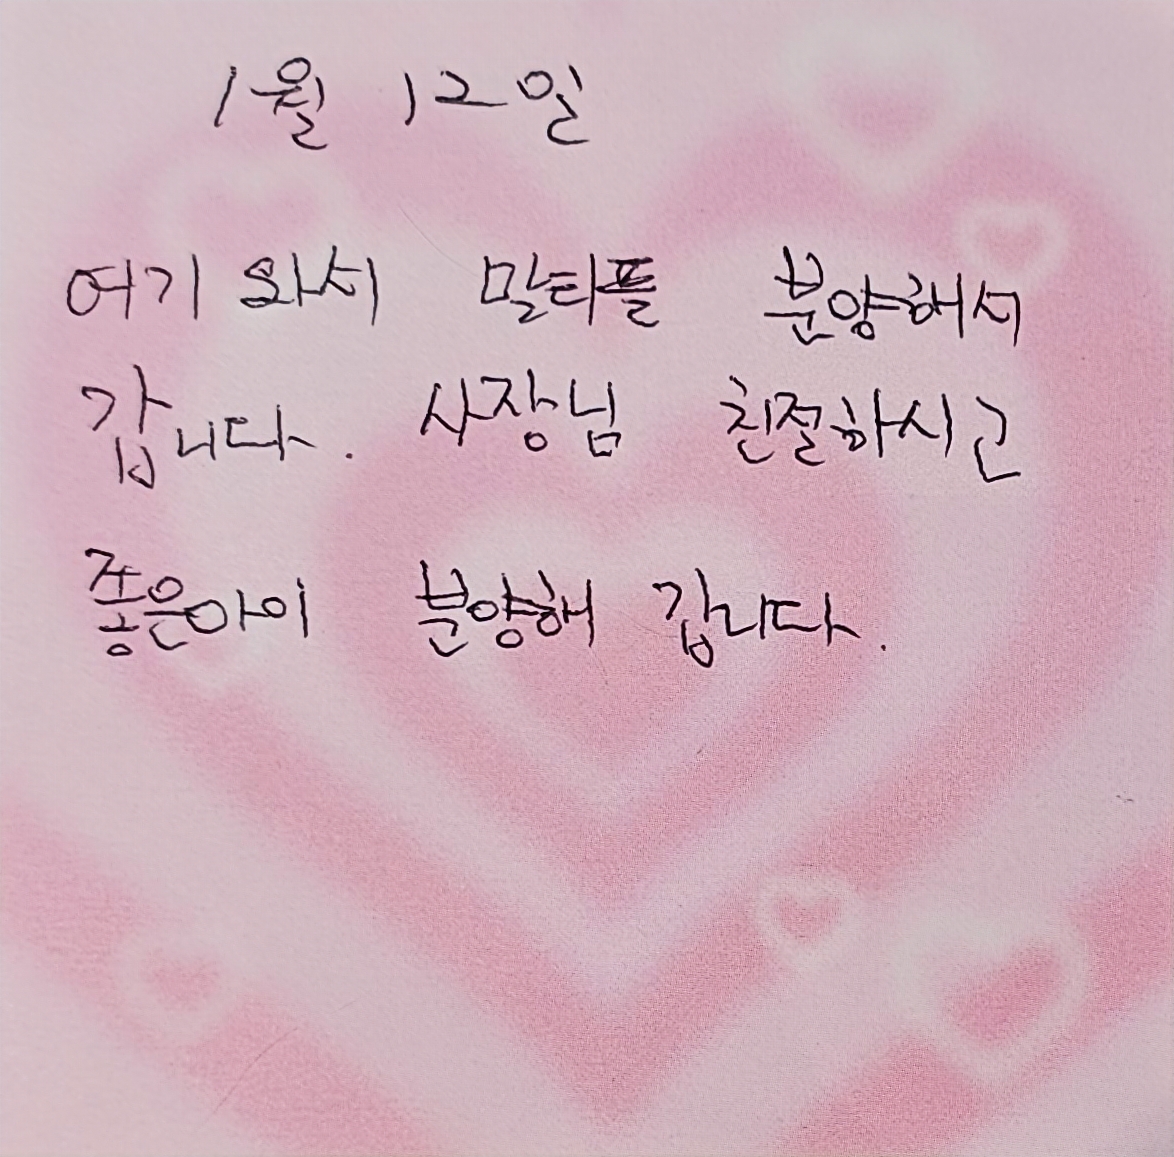 1월 12일
여기 와서 말티플 분양해서
갑니다. 사장님 친절하시고
좋은아이 분양해 갑니다.